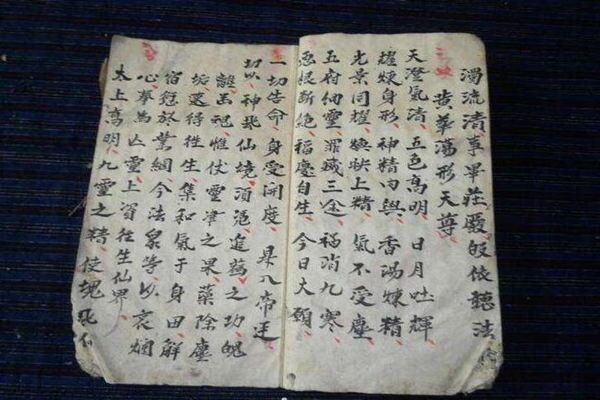 濁流清享畢莊嚴皈依聽法
黃華蕩形天尊
天澄氣清 五色高明 日月吐輝
灌煉身形 神精內與 香湯煉精
光景同耀 上精 氣不受塵
五府納靈 罪滅三途 福消九寒
惡根斷絕 福慶自生 今日大願
一切告命 身受開度 是八帝廷
切以 神飛仙境 須憑進薦之功 魄
離玉冠 惟仗靈津之果 藥除塵
垢 還得往生 集和氣于身田 解
宿愆於業網 今法衆等以哀憫
心 奉為亡靈 上資往生仙界
太上高明 九靈之精 使魂